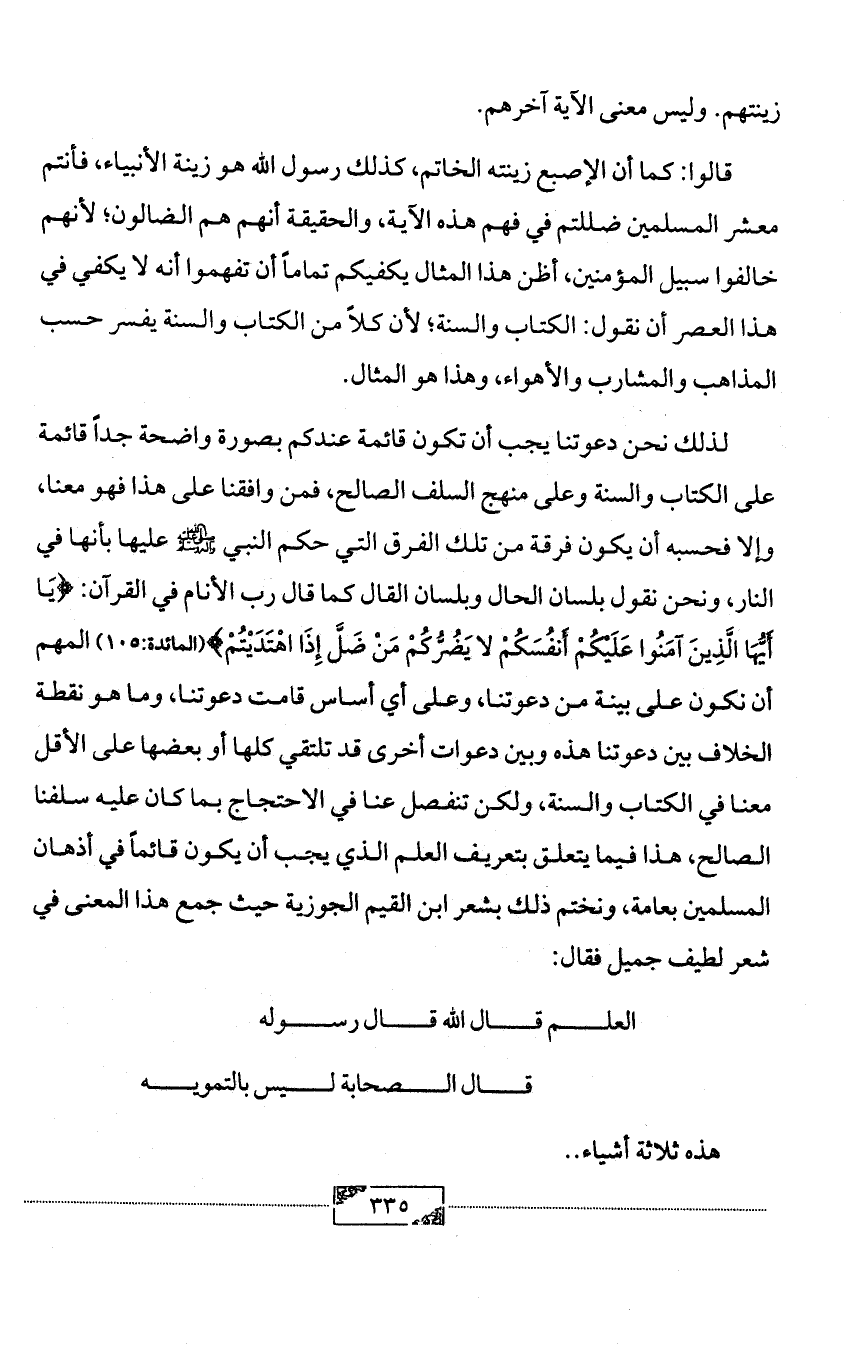 زينتهم. وليس معنى الآية آخرهم.
قالوا: كما أن الإصبع زينته الخاتم، كذلك رسول الله هو زينة الأنبياء، فأنتم
معشر المسلمين ضللتم في فهم هذه الآية، والحقيقة أنهم هم الضالون؛ لأنهم
خالفوا سبيل المؤمنين، أظن هذا المثال يكفيكم تماماً أن تفهموا أنه لا يكفي في
هذا العصر أن نقول: الكتاب والسنة؛ لأن كلاً من الكتاب والسنة يفسر حسب
المذاهب والمشارب والأهواء، وهذا هو المثال.
لذلك نحن دعوتنا يجب أن تكون قائمة عندكم بصورة واضحة جداً قائمة
على الكتاب والسنة وعلى منهج السلف الصالح، فمن وافقنا على هذا فهو معنا،
وإلا فحسبه أن يكون فرقة من تلك الفرق التي حكم النبي ﷺ عليها بأنها في
النار، ونحن نقول بلسان الحال وبلسان القال كما قال رب الأنام في القرآن: ﴿يَا
أَيُّهَا الَّذِينَ آمَنُوا عَلَيْكُمْ أَنفُسَكُمْ لا يَضُرُّكُمْ مَنْ ضَلَّ إِذَا اهْتَدَيْتُمْ﴾(المائدة:١٠٥) المهم
أن نكون على بينة من دعوتنا، وعلى أي أساس قامت دعوتنا، وما هو نقطة
الخلاف بين دعوتنا هذه وبين دعوات أخرى قد تلتقي كلها أو بعضها على الأقل
معنا في الكتاب والسنة، ولكن تنفصل عنا في الاحتجاج بما كان عليه سلفنا
الصالح، هذا فيما يتعلق بتعريف العلم الذي يجب أن يكون قائماً في أذهان
المسلمين بعامة، ونختم ذلك بشعر ابن القيم الجوزية حيث جمع هذا المعنى في
شعر لطيف جميل فقال:
العلـــم قـــال الله قـــال رســـوله
قـــال الـــصحابة لـــيس بالتمويـــه
هذه ثلاثة أشياء..
٣٣٥